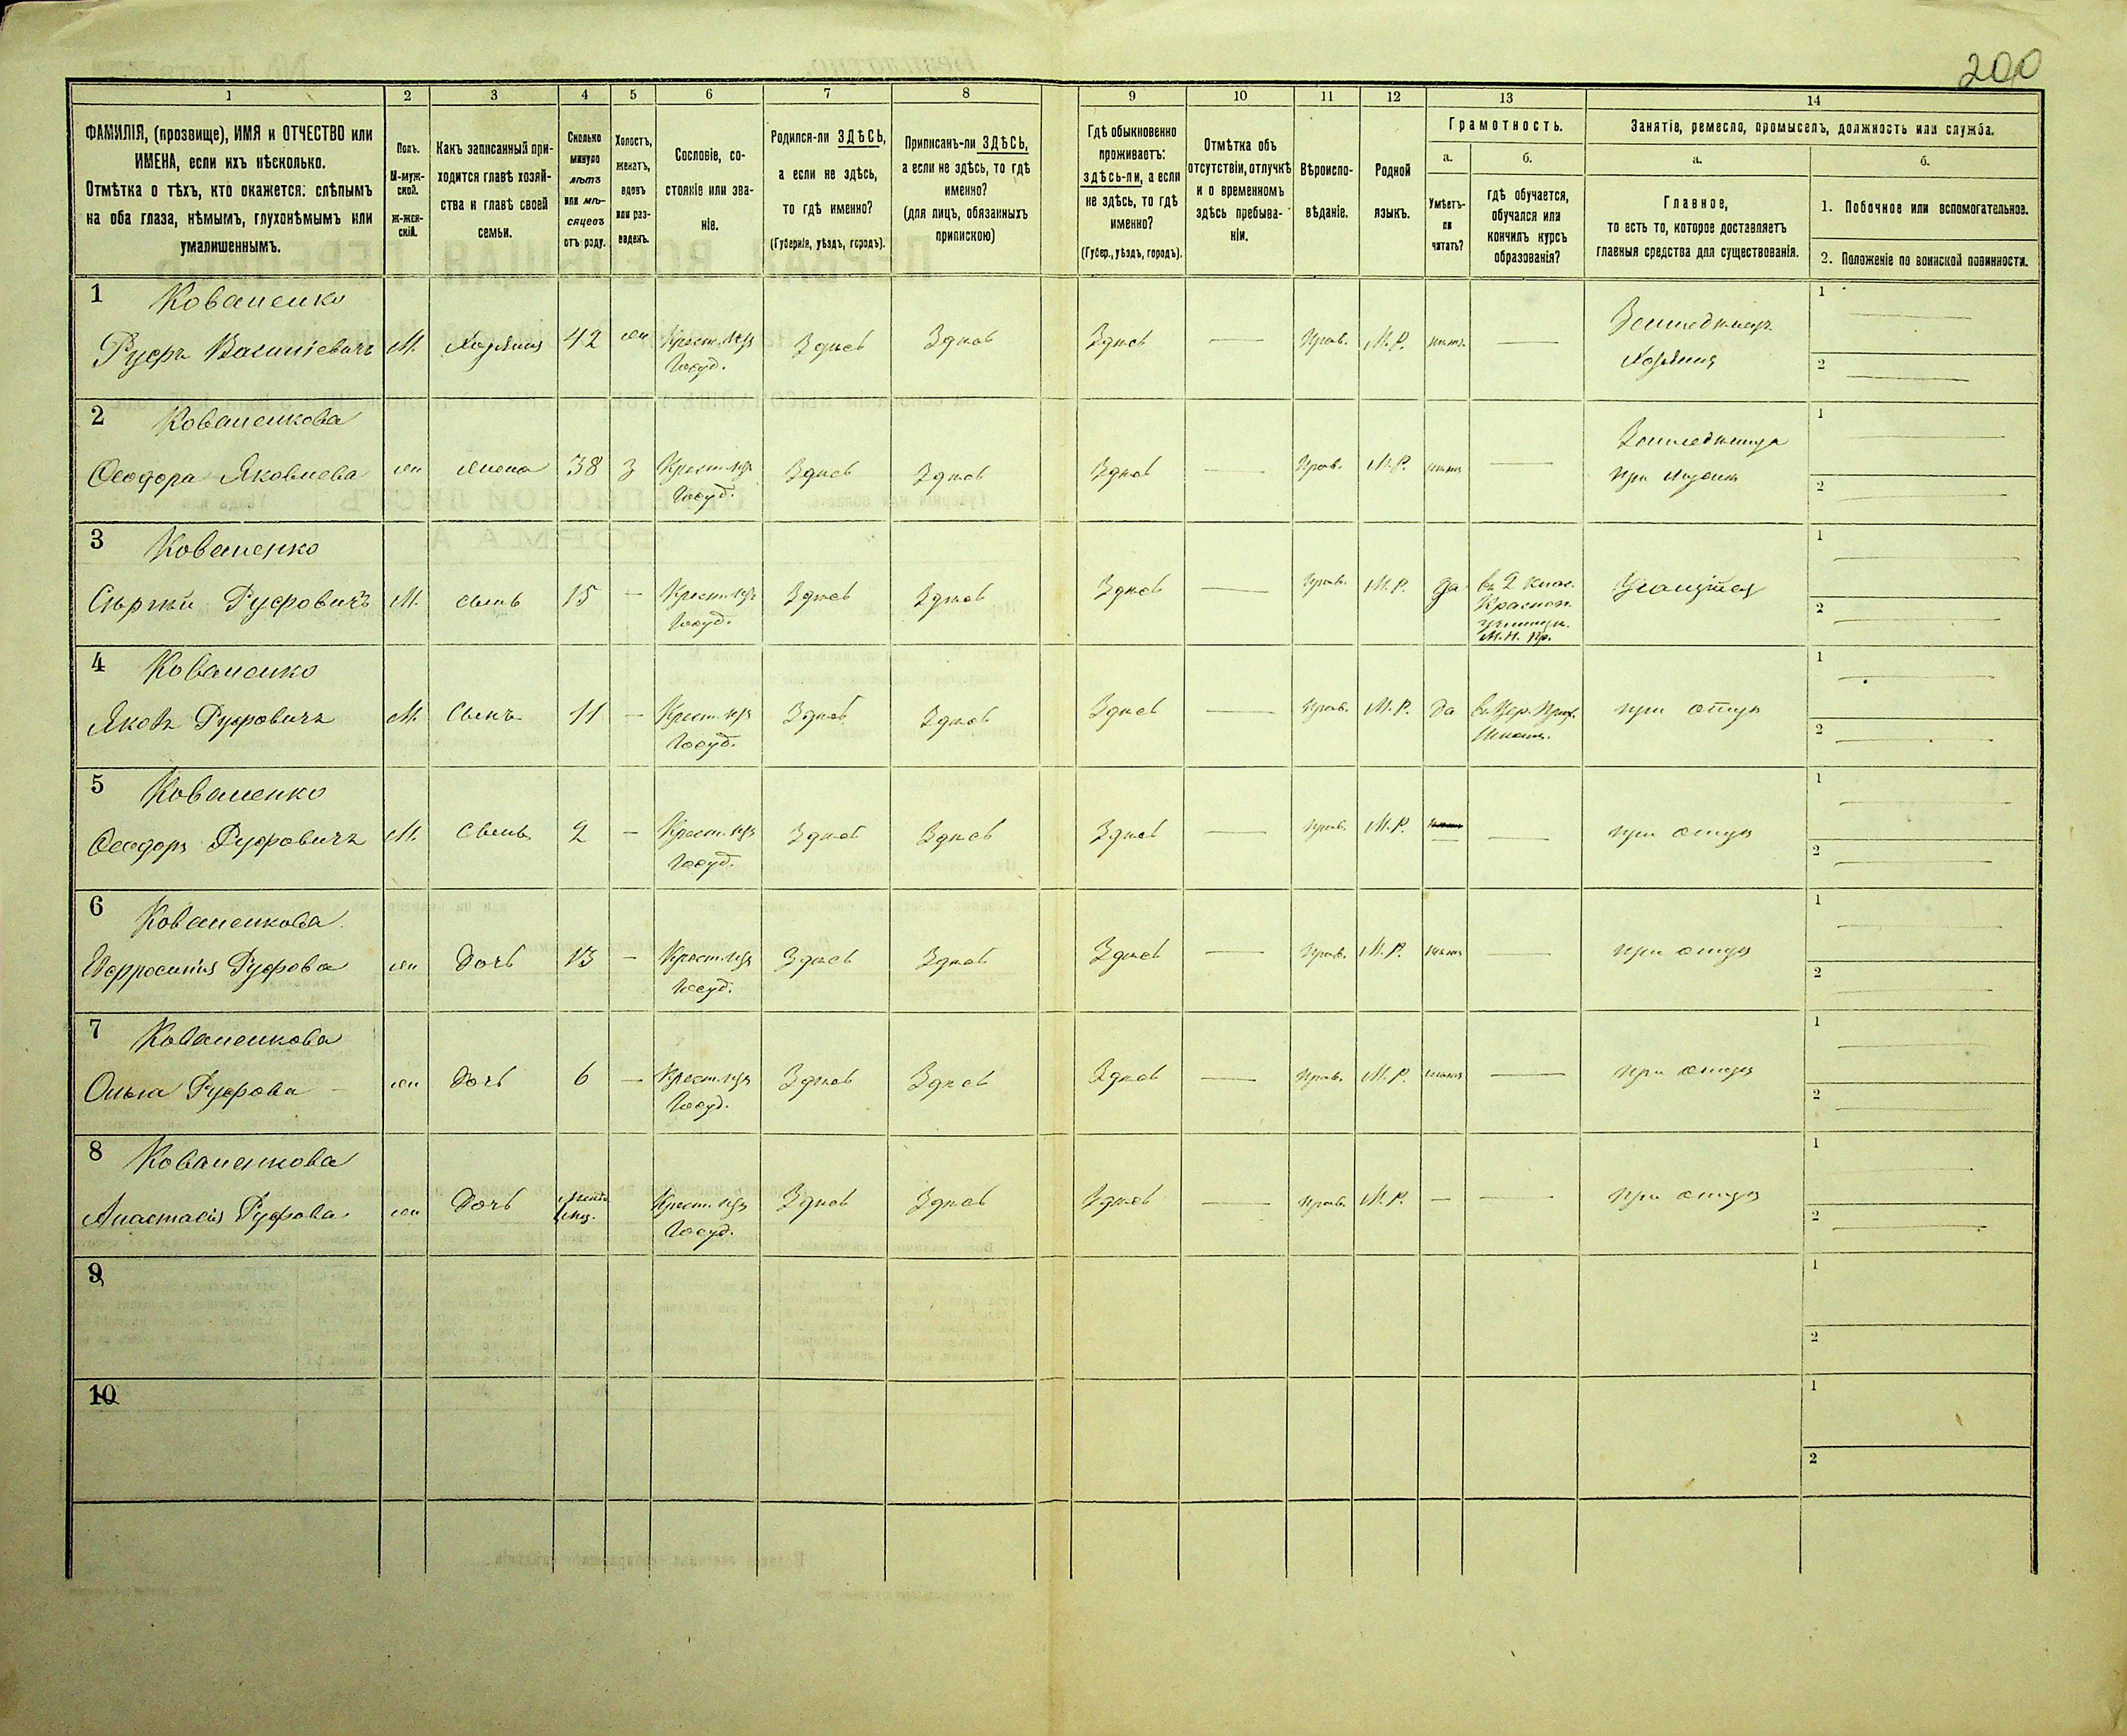 200
1 2 3 4 5 6 7 8 9 10 11 12 13 14
ФАМИЛІЯ, (прозвище), ИМЯ и ОТЧЕСТВО или
ИМЕНА, если ихъ нѣсколько.
Отмѣтка о тѣхъ, кто окажется: слѣпымъ
на оба глаза, нѣмымъ, глухонѣмымъ или
умалишеннымъ.
Полъ.
М-муж-
ской.
Ж-жен-
скій.
Какъ записанный при-
ходится главѣ хозяй-
ства и главѣ своей
семьи.
Сколько
минуло
лѣтъ
или мѣ-
сяцевъ
отъ роду.
Холостъ,
женатъ,
вдовъ
или раз-
веденъ.
Сословіе, со-
стояніе или зва-
ніе.
Родился-ли ЗДѢСЬ,
а если не здѣсь,
то гдѣ именно?
(Губернія, уѣздъ, городъ).
Приписанъ-ли ЗДѢСЬ,
а если не здѣсь, то гдѣ
именно?
(для лицъ, обязанныхъ
припискою)
Гдѣ обыкновенно
проживаетъ:
здѣсь-ли, а если
не здѣсь, то гдѣ
именно?
(Губер., уѣздъ, городъ).
Отмѣтка объ
отсутствіи, отлучкѣ
и о временномъ
здѣсь пребыва-
ніи.
Вѣроиспо-
вѣданіе.
Родной
языкъ.
Грамотность.
а.
Умѣетъ-
ли
читать?
б.
гдѣ обучается,
обучался или
кончилъ курсъ
образованія?
Занятіе, ремесло, промыселъ, должность или служба.
а.
Главное,
то есть то, которое доставляетъ
главныя средства для существованія.
б.
1. Побочное или вспомогательное.
2. Положеніе по воинской повинности.
1 Коваленко 1
Руфъ Василіевичъ М. Хозяинъ 42 жн Крест. изъ Здѣсь Здѣсь Здѣсь — Прав. М.Р. нѣтъ — Земледѣлецъ
Госуд. Хозяинъ 2
2 Коваленкова 1
Ѳеодора Яковлева жн жена 38 з Крест. изъ Здѣсь Здѣсь Здѣсь — Прав. М.Р. нѣтъ — Земледѣлица
Госуд. при мужѣ 2
3 Коваленко 1
Сергѣй Руфовичъ М. сынъ 15 — Крест. изъ Здѣсь Здѣсь Здѣсь — Прав. М.Р. да въ 2 клас. Учащійся
Госуд. 2
училищ.
М. Н. Пр.
4 Коваленко 1
Яковъ Руфовичъ М. Сынъ 11 — Крест. изъ Здѣсь Здѣсь Здѣсь — Прав. М.Р. да въ Цер. Прих. при отцѣ
Госуд. Школѣ. 2
5 Коваленко 1
Ѳеодоръ Руфовичъ М. Сынъ 2 — Крест. изъ Здѣсь Здѣсь Здѣсь — Прав. М.Р. — — при отцѣ
Госуд. 2
6 Коваленкова 1
Ефросинія Руфова жн Дочь 13 — Крест. изъ Здѣсь Здѣсь Здѣсь — Прав. М.Р. нѣтъ — при отцѣ
Госуд. 2
7 Коваленкова 1
Ольга Руфова жн Дочь 6 — Крест. изъ Здѣсь Здѣсь Здѣсь — Прав. М.Р. нѣтъ — при отцѣ
Госуд. 2
8 Коваленкова 1
Анастасія Руфова жн Дочь Крест. изъ Здѣсь Здѣсь Здѣсь — Прав. М.Р. — — при отцѣ
Госуд. 2
9 1
2
10 1
2